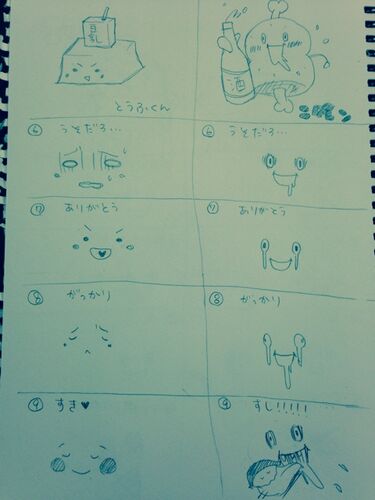 豆乳
酒
とうふくん
⑥ うそだろ…
⑥ うそだろ…
⑦ ありがとう
⑦ ありがとう
⑧ がっかり
⑧ がっかり
⑨ すき♥
⑨ すし!!!!!